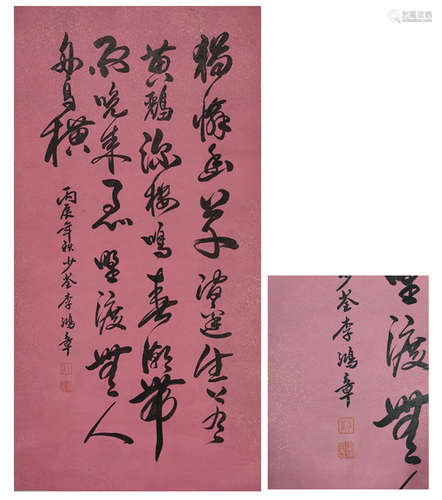 獨憐幽草澗邊生上有
黃鸝深樹鳴春潮帶
雨晚來急野渡無人
舟自橫
丙辰年秋少荃李鴻章
渡無人
少荃李鴻章